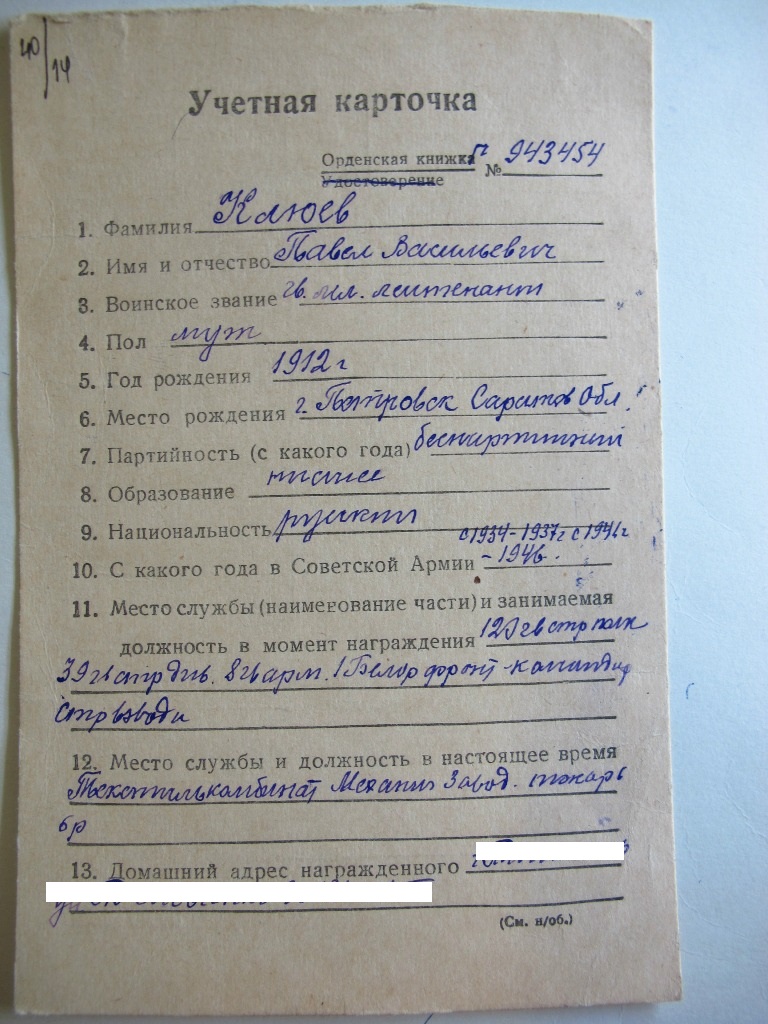 40/14
Учетная карточка
Орденская книжка Г № 943454
Удостоверение
1. Фамилия Клюев
2. Имя и отчество Павел Васильевич
3. Воинское звание гв. мл. лейтенант
4. Пол муж
5. Год рождения 1912 г
6. Место рождения г. Петровск Саратов Обл.
7. Партийность (с какого года) беспартийный
8. Образование низшее
9. Национальность русский
с 1934-1937г с 1941г
10. С какого года в Советской Армии - 1946.
11. Место службы (наименование части) и занимаемая
должность в момент награждения 120 гв стр полк
39 гв стр див. 8 гв арм. 1 Белор фронт - командир
стр взвода
12. Место службы и должность в настоящее время
Текстилькомбинат Механич Завод.
бр
13. Домашний адрес награжденного
(См. н/об.)